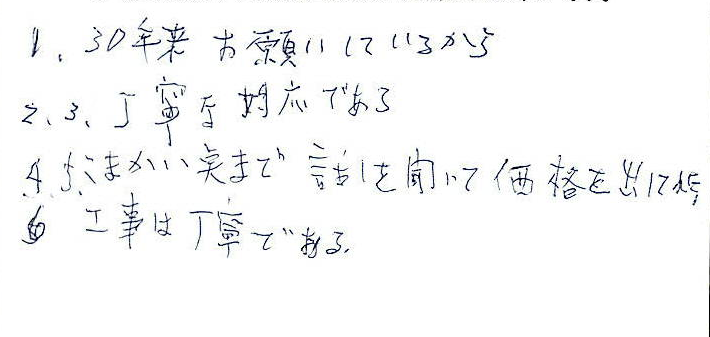 1、30年来お願いしているから
2、3、丁寧な対応である
4、5、こまかい点まで話しを聞いて価格を出して
6 工事は丁寧である。